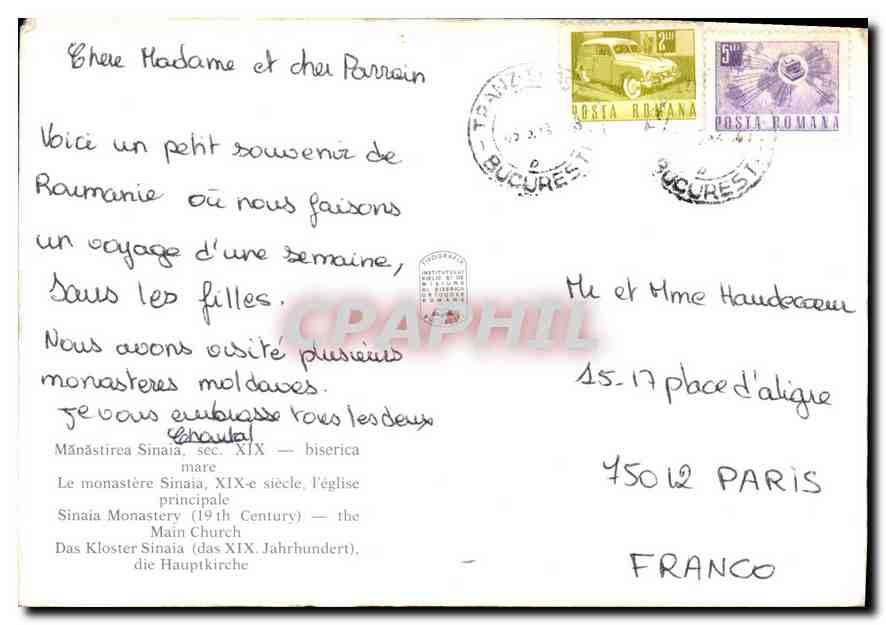 Chere Madame et cher Parrain
Voici un petit souvenir de
Roumanie où nous faisons
un voyage d'une semaine,
sans les filles.
Nous avons visité plusieurs
monasteres moldaves.
Je vous embrasse tous les deux
Chantal
Mănăstirea Sinaia, sec. XIX — biserica
mare
Le monastère Sinaia, XIX-e siècle, l'église
principale
Sinaia Monastery (19 th Century) — the
Main Church
Das Kloster Sinaia (das XIX. Jahrhundert),
die Hauptkirche
TIPOGRAFIA
INSTITUTULUI
BIBLIC ȘI DE
MISIUNE
AL BISERICII
ORTODOXE
ROMÂNE
CPAPHIL
POSTA ROMANA
POSTA ROMANA
BUCURESTI
BUCURESTI
Mr et Mme Haudecoeur
15-17 place d'aligre
75012 PARIS
FRANCO